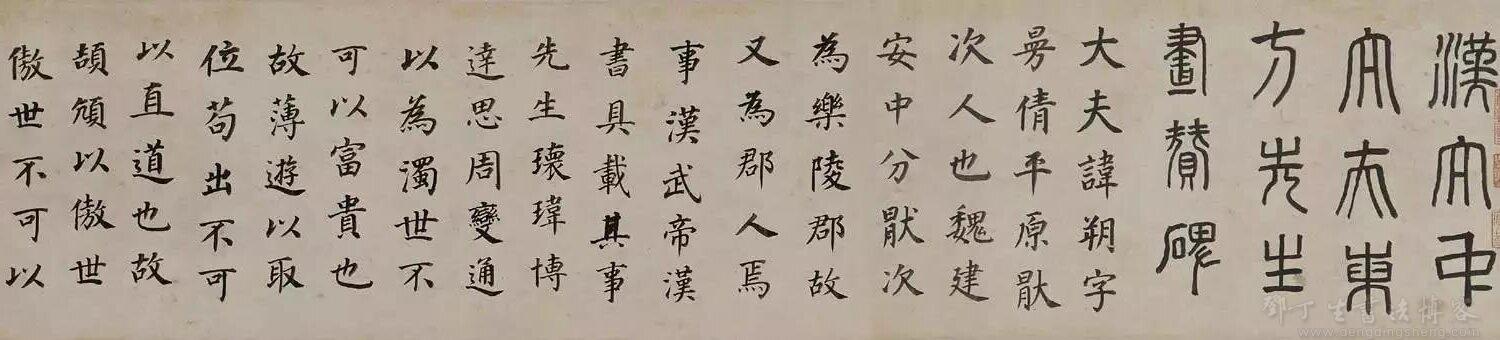 漢大中
大夫東
方先生
畫贊碑
大夫諱朔字
曼倩平原猒
次人也魏建
安中分猒次
為樂陵郡故
又為郡人焉
事漢武帝漢
書具載其事
先生瓌瑋博
達思周變通
以為濁世不
可以富貴也
故薄遊以取
位苟出不可
以直道也故
頡頏以傲世
傲世不可以
鄧丁生書法博客
www.dengdingsheng.com